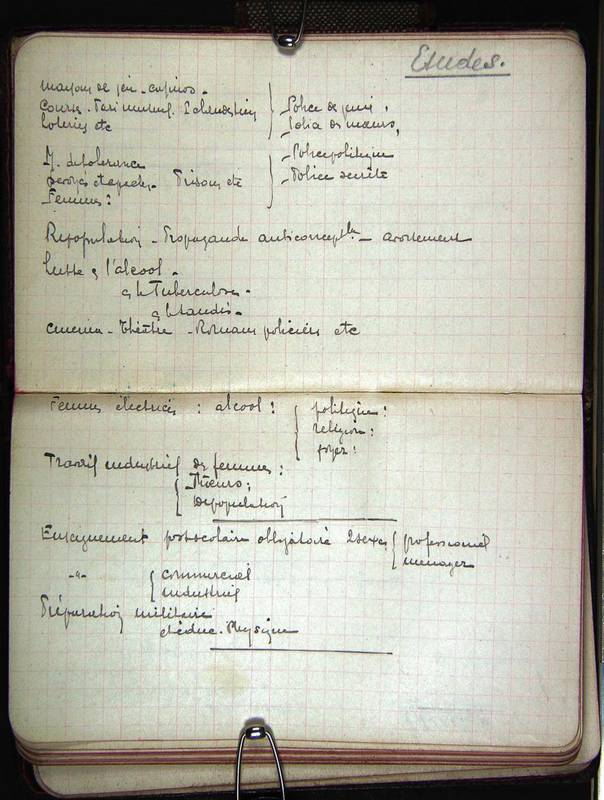 Etudes.
maisons de jeu - casinos -
Courses - Pari mutuel. Clandestins
Loteries etc
Police de jeux,
Police de mœurs,
M. de tolérance
Prisons etc
Femmes :
- Police politique
- Police secrète
Repopulation - Propagande anticoncept^lle - avortement
Lutte c/ l'alcool -
c/ la Tuberculose -
c/ taudis -
cinema - théâtre - Romans policiers etc
Femmes électrices : alcool :
politique :
religion :
foyer :
Travail industriel des femmes :
Mœurs,
Dépopulation
Enseignement postscolaire obligatoire 2 sexes
professionnel
menager
-"-
commercial
industriel
Préparation militaire
et éduc. Physique